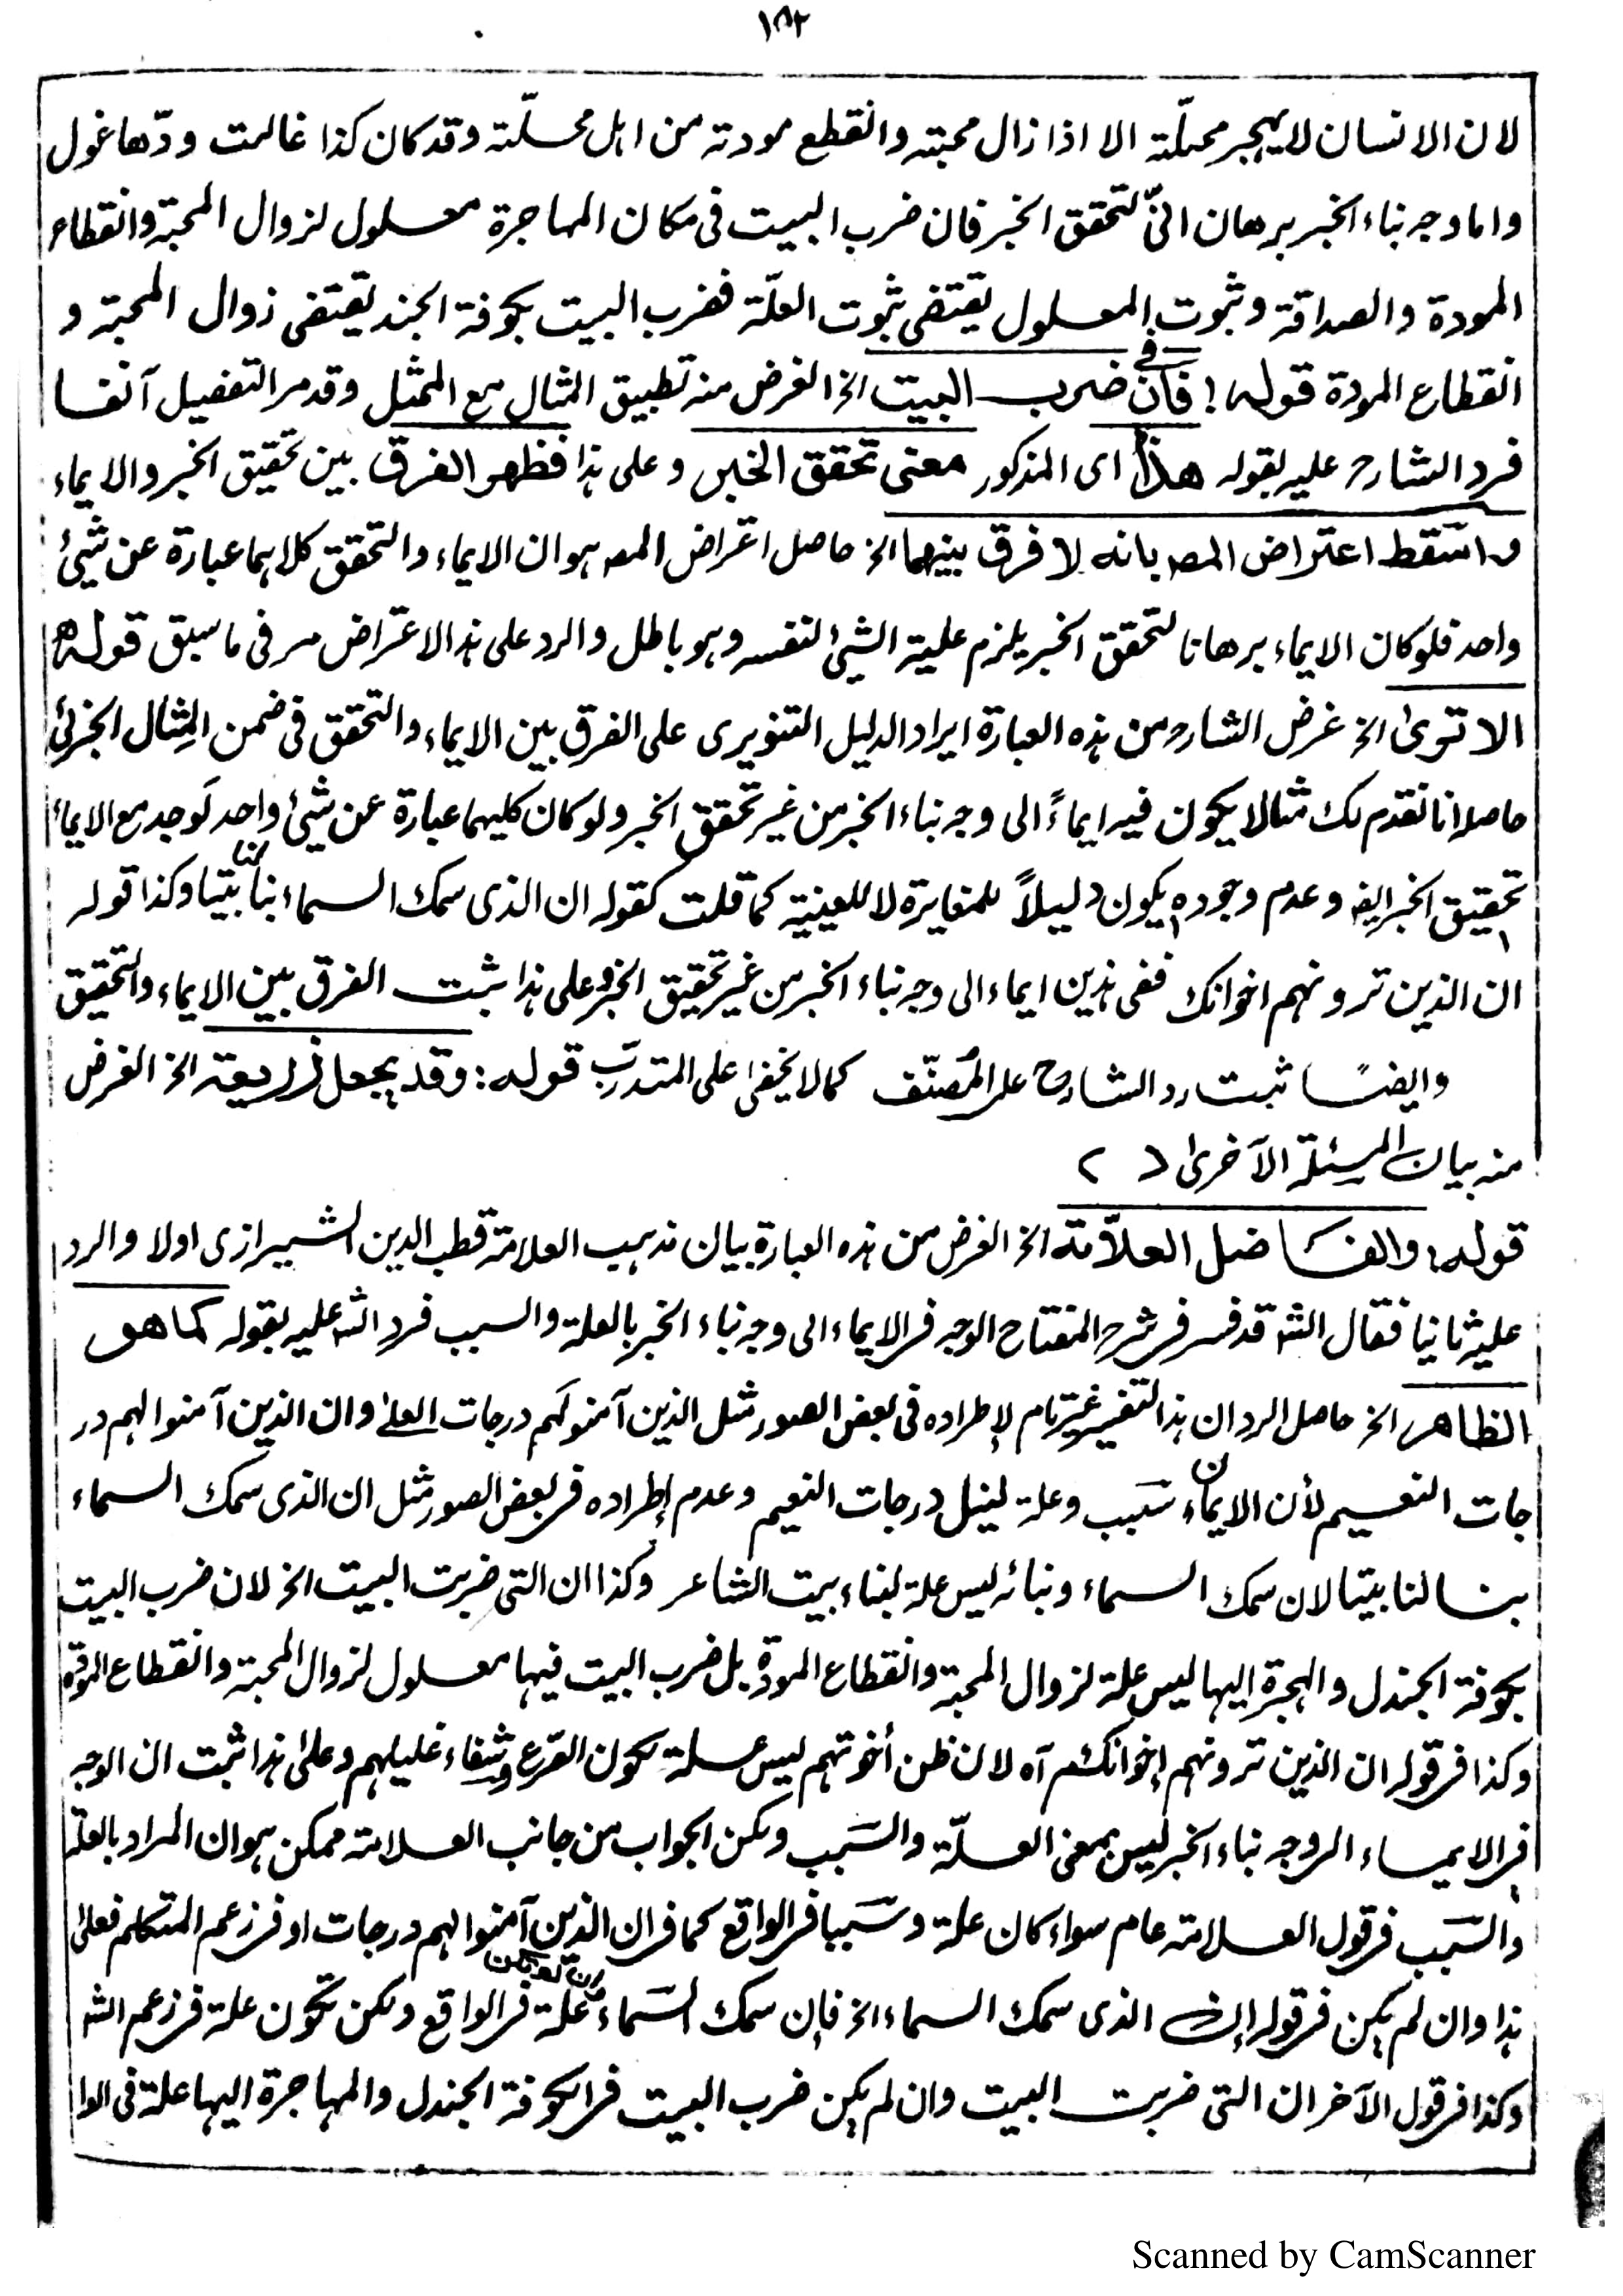 ١٨٢
لان الانسان لا يهجر محلّة الا اذا زال محبته وانقطع مودته من اهل محلّته وقد كان كذا غالت ودّها غول
واما وجه بناء الخبر برهان انىّ لتحقق الخبر فان ضرب البيت فى مكان المهاجرة معلول لزوال المحبة وانقطاع
المودة والصداقة وثبوت المعلول يقتضى ثبوت العلّة فضرب البيت بكوفة الجند يقتضى زوال المحبة و
انقطاع المودة قوله: فان فى ضرب البيت الخ الغرض منه تطبيق المثال مع الممثل وقد مر التفصيل آنفا
فرد الشارح عليه بقوله هذا اى المذكور معنى تحقق الخبر وعلى هذا فظهر الفرق بين تحقيق الخبر والايماء
واسقط اعتراض المصـ بانه لا فرق بينهما الخ حاصل اعتراض المصـ هو ان الايماء والتحقق كلاهما عبارة عن شيئ
واحد فلو كان الايماء برهانا لتحقق الخبر يلزم علية الشيئ لنفسه وهو باطل والرد على هذ الاعتراض مر فى ما سبق قوله
الا ترىٰ الخ غرض الشارح من هذه العبارة ايراد الدليل التنويرى على الفرق بين الايماء والتحقق فى ضمن المثال الجزئى
حاصله انا نقدم لك مثالا يكون فيه ايماءً الى وجه بناء الخبر من غير تحقق الخبر ولو كان كليهما عبارة عن شيئ واحد لَوجد مع الايماء
تحقيق الخبر ايضـ وعدم وجوده يكون دليلاً للمغايرة لا للعينية كما قلت كقوله ان الذى سمك السماء بنا لنا بيتا وكذا قوله
ان الذين ترونهم اخوانك ففى هذين ايماء الى وجه بناء الخبر من غير تحقيق الخبر وعلى هذا ثبت الفرق بين الايماء والتحقيق
وايضًا ثبت رد الشارح على المُصنّف كما لا يخفىٰ على المتدرّب قوله: وقد يجعل ذريعة الخ الغرض
منه بيان المسئلة الآخرىٰ ( )
قوله: والفاضل العلاّمة الخ الغرض من هذه العبارة بيان مذهب العلامة قطب الدين الشيرازى اولا والرد
عليه ثانيا فقال الشـ قد فسر فى شرح المفتاح الوجه فى الايماء الى وجه بناء الخبر بالعلة والسبب فرد الشـ عليه بقوله كما هو
الظاهر الخ حاصل الرد ان هذا التفسير غير تام لإطراده فى بعض الصور مثل الذين آمنو لهم درجات العلىٰ وان الذين آمنوا لهم در
جات النعيم لأن الايمان سَبب وعلة لنيل درجات النعيم وعدم إطراده فى بعض الصور مثل ان الذى سمك السماء
بنا لنا بيتا لان سمك السماء وبنائه ليس علة لبناء بيت الشاعر وكذا ان التى ضربت البيت الخ لان ضرب البيت
بكوفة الجندل والهجرة اليها ليس علة لزوال المحبة وانقطاع المودّة بل ضرب البيت فيها معلول لزوال المحبة وانقطاع المودة
وكذا فى قوله ان الذين ترونهم إخوانكم آه لان ظن أخوتهم ليس علة لكون الصّرع وشفاء غليلهم وعلىٰ هذا ثبت ان الوجه
فى الايماء الى وجه بناء الخبر ليس بمعنى العلّة والسَبب ولكن الجواب من جانب العلامة ممكن هو ان المراد بالعلة
والسَبب فى قول العلامة عام سواء كان علة وسَببا فى الواقع كما فى ان الذين آمنوا لهم درجات او فى زعم المتكلم فعلىٰ
هذا وان لم يكن فى قوله إن الذى سمك السماء الخ فإن سمك السَماء علة فى الواقع ولكن تكون علة فى زعم الشـ
وكذا فى قول الآخر ان التى ضربت البيت وان لم يكن ضرب البيت فى الكوفة الجندل والمهاجرة اليها علة فى الوا
Scanned by CamScanner